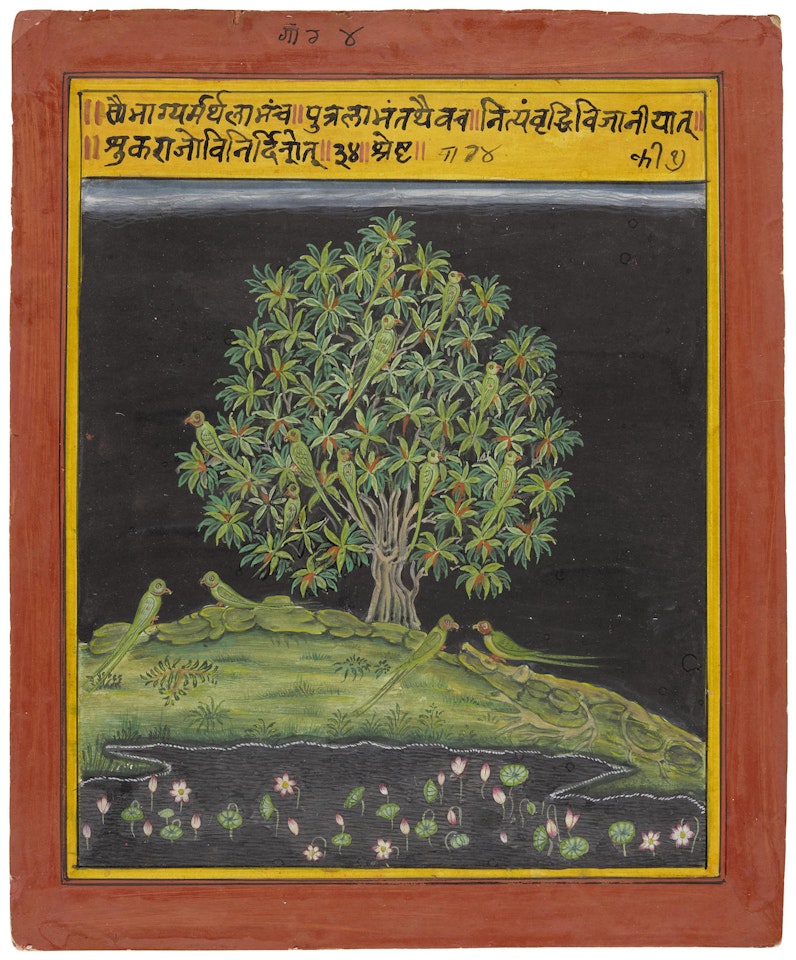 ॥सौभाग्यर्मर्थलाभंच॥पुत्रलाभंतथैवच॥नित्यंवृद्धिविजानीयात्॥
॥शुकराजोविनिर्दिशेत्॥३४॥श्रेष्ट॥